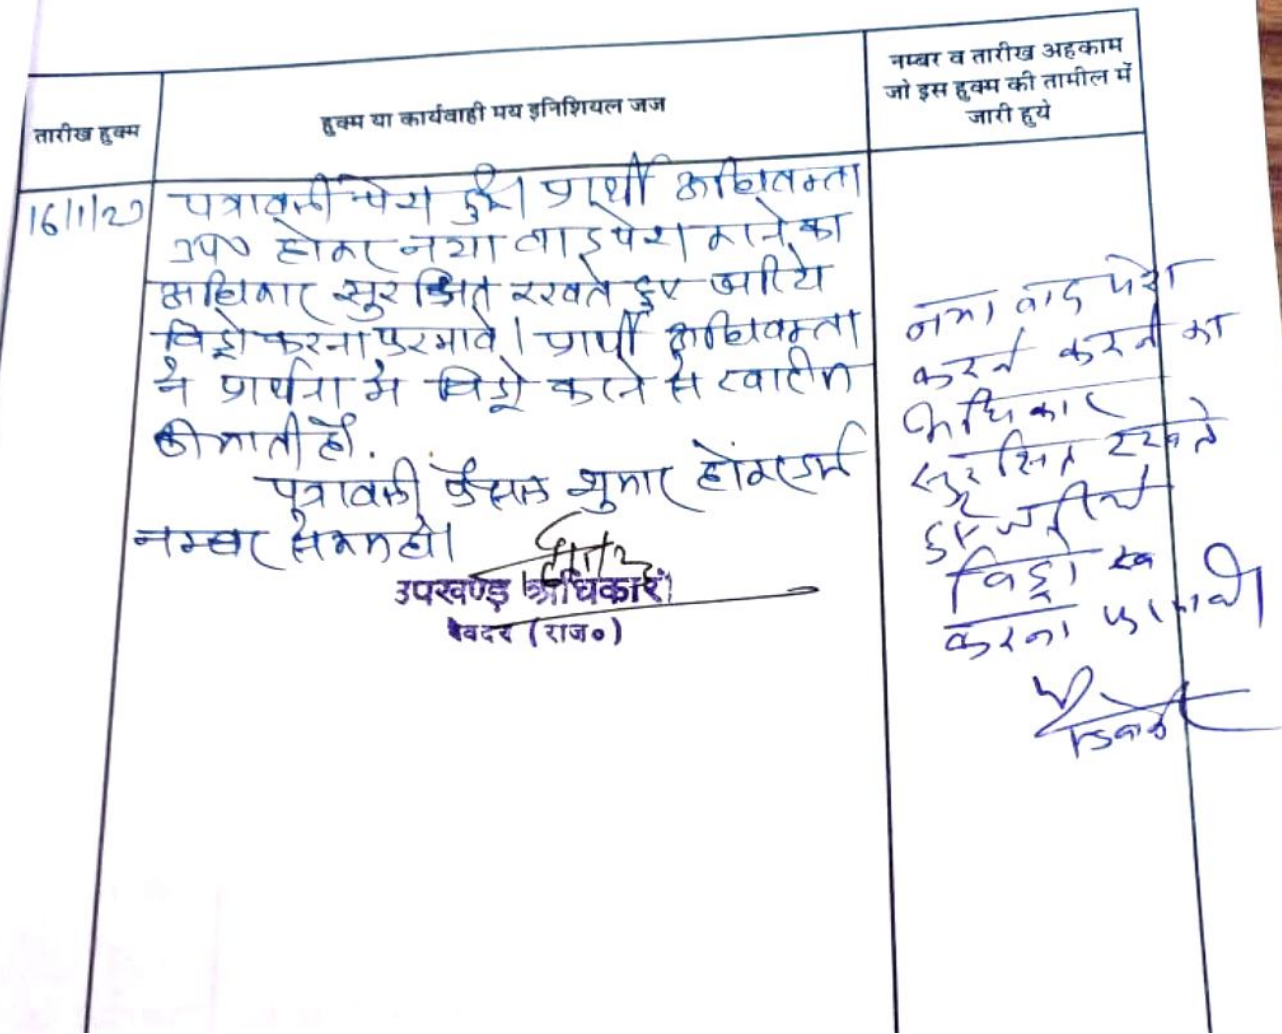 तारीख हुक्म
हुक्म या कार्यवाही मय इनिशियल जज
नम्बर व तारीख अहकाम
जो इस हुक्म की तामील में
जारी हुये
16/1/20
पत्रावली पेश हुई। प्रार्थी अधिवक्ता
उप० होकर नया वाद पेश करने का
अधिकार सुरक्षित रखते हुए जरिये
विड्रो करना फरमावे। प्रार्थी अधिवक्ता
ने प्रार्थना में विड्रो करने से खारीज
की जाती है।
पत्रावली फैसल शुमार होकर दर्ज
नम्बर से कम हो।
उपखण्ड अधिकारी
रेवदर (राज०)
नया वाद पेश
करने करने का
अधिकार
सुरक्षित रखते
हुए जरीये
विड्रो
करना फरमावे